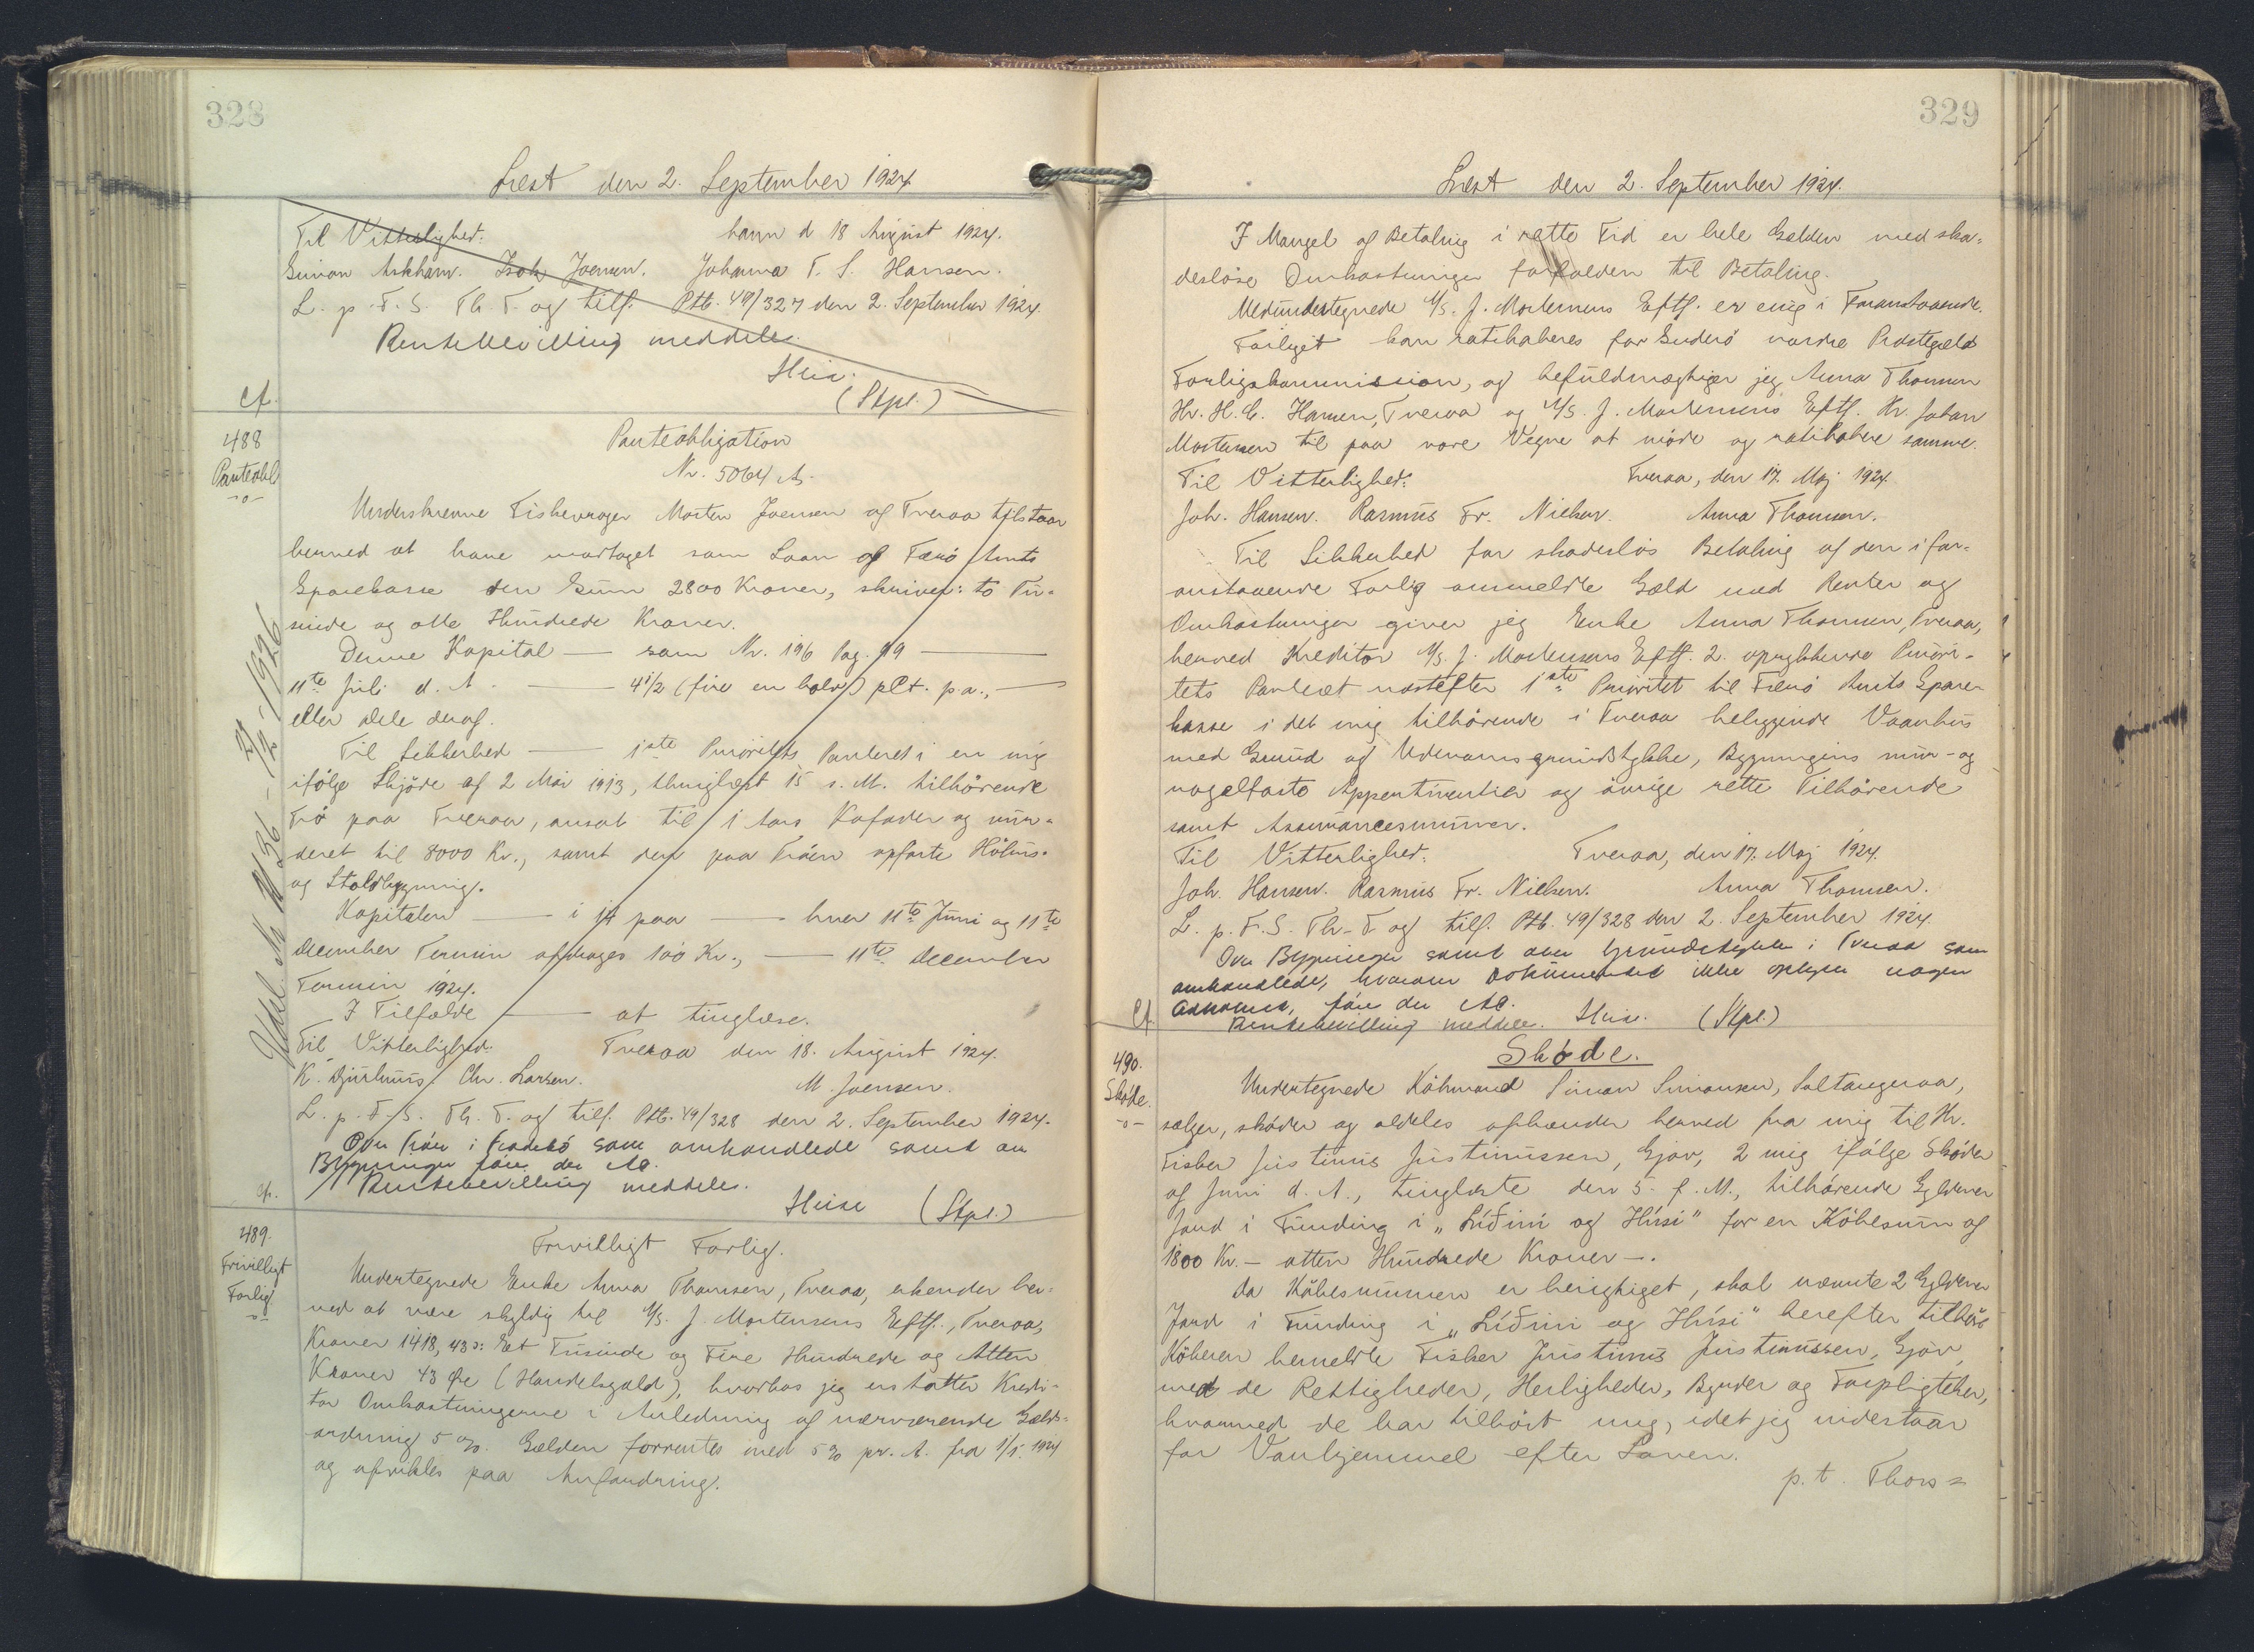 328
Læst den 2. September 1924
Til Vitterlighed: havn d 18 August 1924.
Simon Askham. Isak Joensen. Johanna T. S. Hansen.
L. p. F. S. Th. T. og tilf. Ptb. 49/327 den 2. September 1924
Rentebevilling meddeles.
Heise.
(Stpl.)
Cf.
488
Panteobl
-o-
Panteobligation
Nr. 5064 A.
Underskrevne Fiskevrager Morten Joensen af Tveraa tilstaar
herved at have modtaget som Laan af Færø Amts
Sparekasse den Sum 2800 Kroner, skriver: to Tu-
sinde og otte Hundrede Kroner.
Denne Kapital — som Nr. 196 Pag. 99 —
11te Juli d. A. — 4 1/2 (fire en halv) pCt. p.a., —
eller Dele deraf.
Til Sikkerhed — 1ste Prioritets Panteret i en mig
ifølge Skjøde af 2 Mai 1913, thinglæst 15 s. M. tilhørende
Trø paa Tveraa, ansat til 1 Lams Kofoder og vur-
deret til 8000 Kr., samt den paa Trøen opførte Hølms-
og Staldbygning.
Kapitalen — i it paa — hver 11te Juni og 11te
December Termin afdrages 100 Kr., — 11te December
Termin 1924.
I Tilfælde — at tinglæse.
Til Vitterlighed: Tveraa den 18. August 1924.
K. Djurhuus. Chr. Larsen. M. Joensen.
L. p. F. S. Th. T. og tilf. Ptb. 49/328 den 2. September 1924.
Over Trøen i som omhandlede samt om
Bygningen føres der Ao.
Rentebevilling meddeles.
Heise (Stpl.)
Cf.
489.
Frivilligt
Forlig
-o-
Frivilligt Forlig.
Undertegnede Enke Anna Thomsen, Tveraa, erkender her-
ved at være skyldig til A/S. J. Mortensens Eftf., Tveraa,
Kroner 1418,43 ɔ: Et Tusinde og Fire Hundrede og Atten
Kroner 43 Øre (Handelsgæld), hvorhos jeg erstatter Kredi-
tor Omkostningerne i Anledning af nærværende Gælds-
ordning 5 %. Gælden forrentes med 5 % pr. A. fra 1/1. 1924
og afvikles paa Anfordring.
329
Læst den 2. September 1924.
I Mangel af Betaling i rette Tid er hele Gælden med ska-
desløse Omkostninger forfalden til Betaling.
Medundertegnede A/S. J. Mortensens Eftf. er enig i Foranstaaende.
Forliget kan ratihaberes for Suderø nordre Præstegælds
Forligskommission, og befuldmægtiger jeg Anna Thomsen
Hr. H. C. Hansen, Tveraa og A/S. J. Mortensens Eftf. Hr. Johan
Mortensen til paa vore Vegne at møde og ratihabere samme.
Til Vitterlighed: Tveraa, den 17. Maj 1924.
Joh. Hansen. Rasmus Fr. Nielsen. Anna Thomsen.
Til Sikkerhed for skadesløs Betaling af den i for-
anstaaende Forlig ommeldte Gæld med Renter og
Omkostninger giver jeg Enke Anna Thomsen, Tveraa,
herved Kreditor A/S. J. Mortensens Eftf. 2. oprykkende Priori-
tets Panteret næstefter 1ste Prioritet til Færø Amts Spare-
kasse i det mig tilhørende i Tveraa beliggende Vaanhus
med Grund og Udenomsgrundstykke, Bygningens mur- og
nagelfaste Appertinentier og øvrige rette Tilhørende
samt Assurancesummer.
Til Vitterlighed: Tveraa, den 17. Maj 1924.
Joh. Hansen. Rasmus Fr. Nielsen. Anna Thomsen.
L. p. F. S. Th. T. og tilf. Ptb. 49/328 den 2. September 1924.
Over Bygningen samt over Grundstykket i Tveraa som
omhandlede, hvorom Dokumentet ikke oplyser nogen
Adkomst, føres der Ao.
Rentebevilling meddeles. Heise. (Stpl.)
Cf.
490.
Skøde.
-o-
Skøde.
Undertegnede Købmand Simon Simonsen, Saltangeraa,
sælger, skøder og aldeles afhænder herved fra mig til Hr.
Fisker Justinus Justinussen, Gjov, 2 mig ifølge Skøder
af Juni d. A., tinglæste den 5. f. M., tilhørende Gyldener
Jord i Funding i „Líðini og Húsi" for en Købesum af
1800 Kr. – atten Hundrede Kroner –.
Da Købesummen er berigtiget, skal nævnte 2 Gyldener
Jord i Funding i „Líðini og Húsi" herefter tilhøre
Køberen bemeldte Fisker Justinus Justinussen, Gjov,
med de Rettigheder, Herligheder, Byrder og Forpligtelser,
hvormed de har tilhørt mig, idet jeg indestaar
for Vanhjemmel efter Loven.
p. t. Thors=